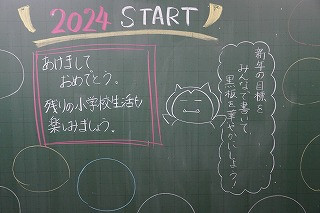 2024 START
あけまして
おめでとう。
残りの小学校生活も
楽しみましょう。
新年の目標を
みんなで書いて
黒板を華やかにしよう!